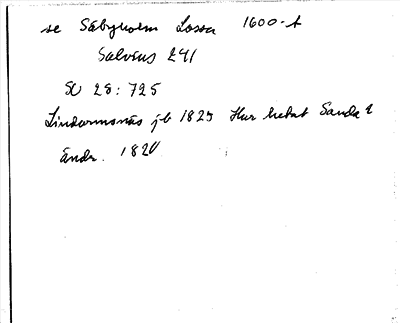 se Säbyholm Lossa 1600-t
Salvius 241
SU 28:725
Lindormsnäs jb 1825 Hur hetat Sanda?
ändr. 1820